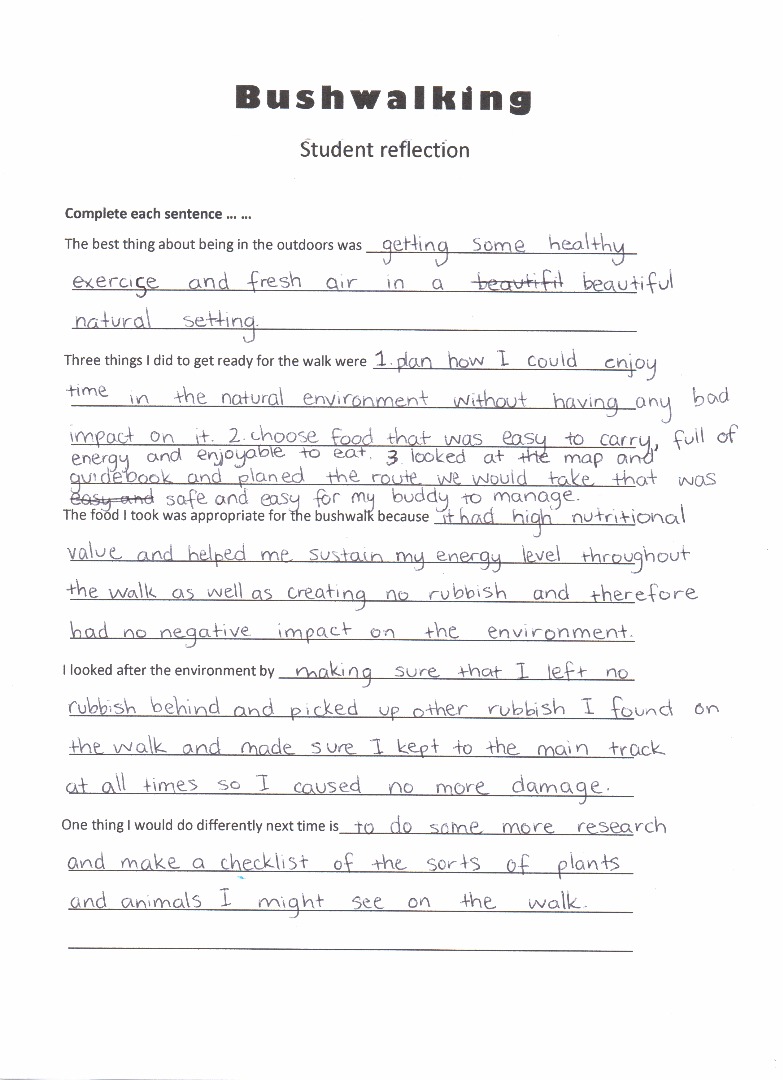 Bushwalking
Student reflection
Complete each sentence ... ...
The best thing about being in the outdoors was getting some healthy
exercise and fresh air in a ~~beautifil~~ beautiful
natural setting.
Three things I did to get ready for the walk were 1. plan how I could enjoy
time in the natural environment without having any bad
impact on it. 2. choose food that was easy to carry, full of
energy and enjoyable to eat. 3 looked at the map and
guidebook and planed the route we would take that was
~~easy and~~ safe and easy for my buddy to manage.
The food I took was appropriate for the bushwalk because it had high nutritional
value and helped me sustain my energy level throughout
the walk as well as creating no rubbish and therefore
had no negative impact on the environment.
I looked after the environment by making sure that I left no
rubbish behind and picked up other rubbish I found on
the walk and made sure I kept to the main track
at all times so I caused no more damage.
One thing I would do differently next time is to do some more research
and make a checklist of the sorts of plants
and animals I might see on the walk.